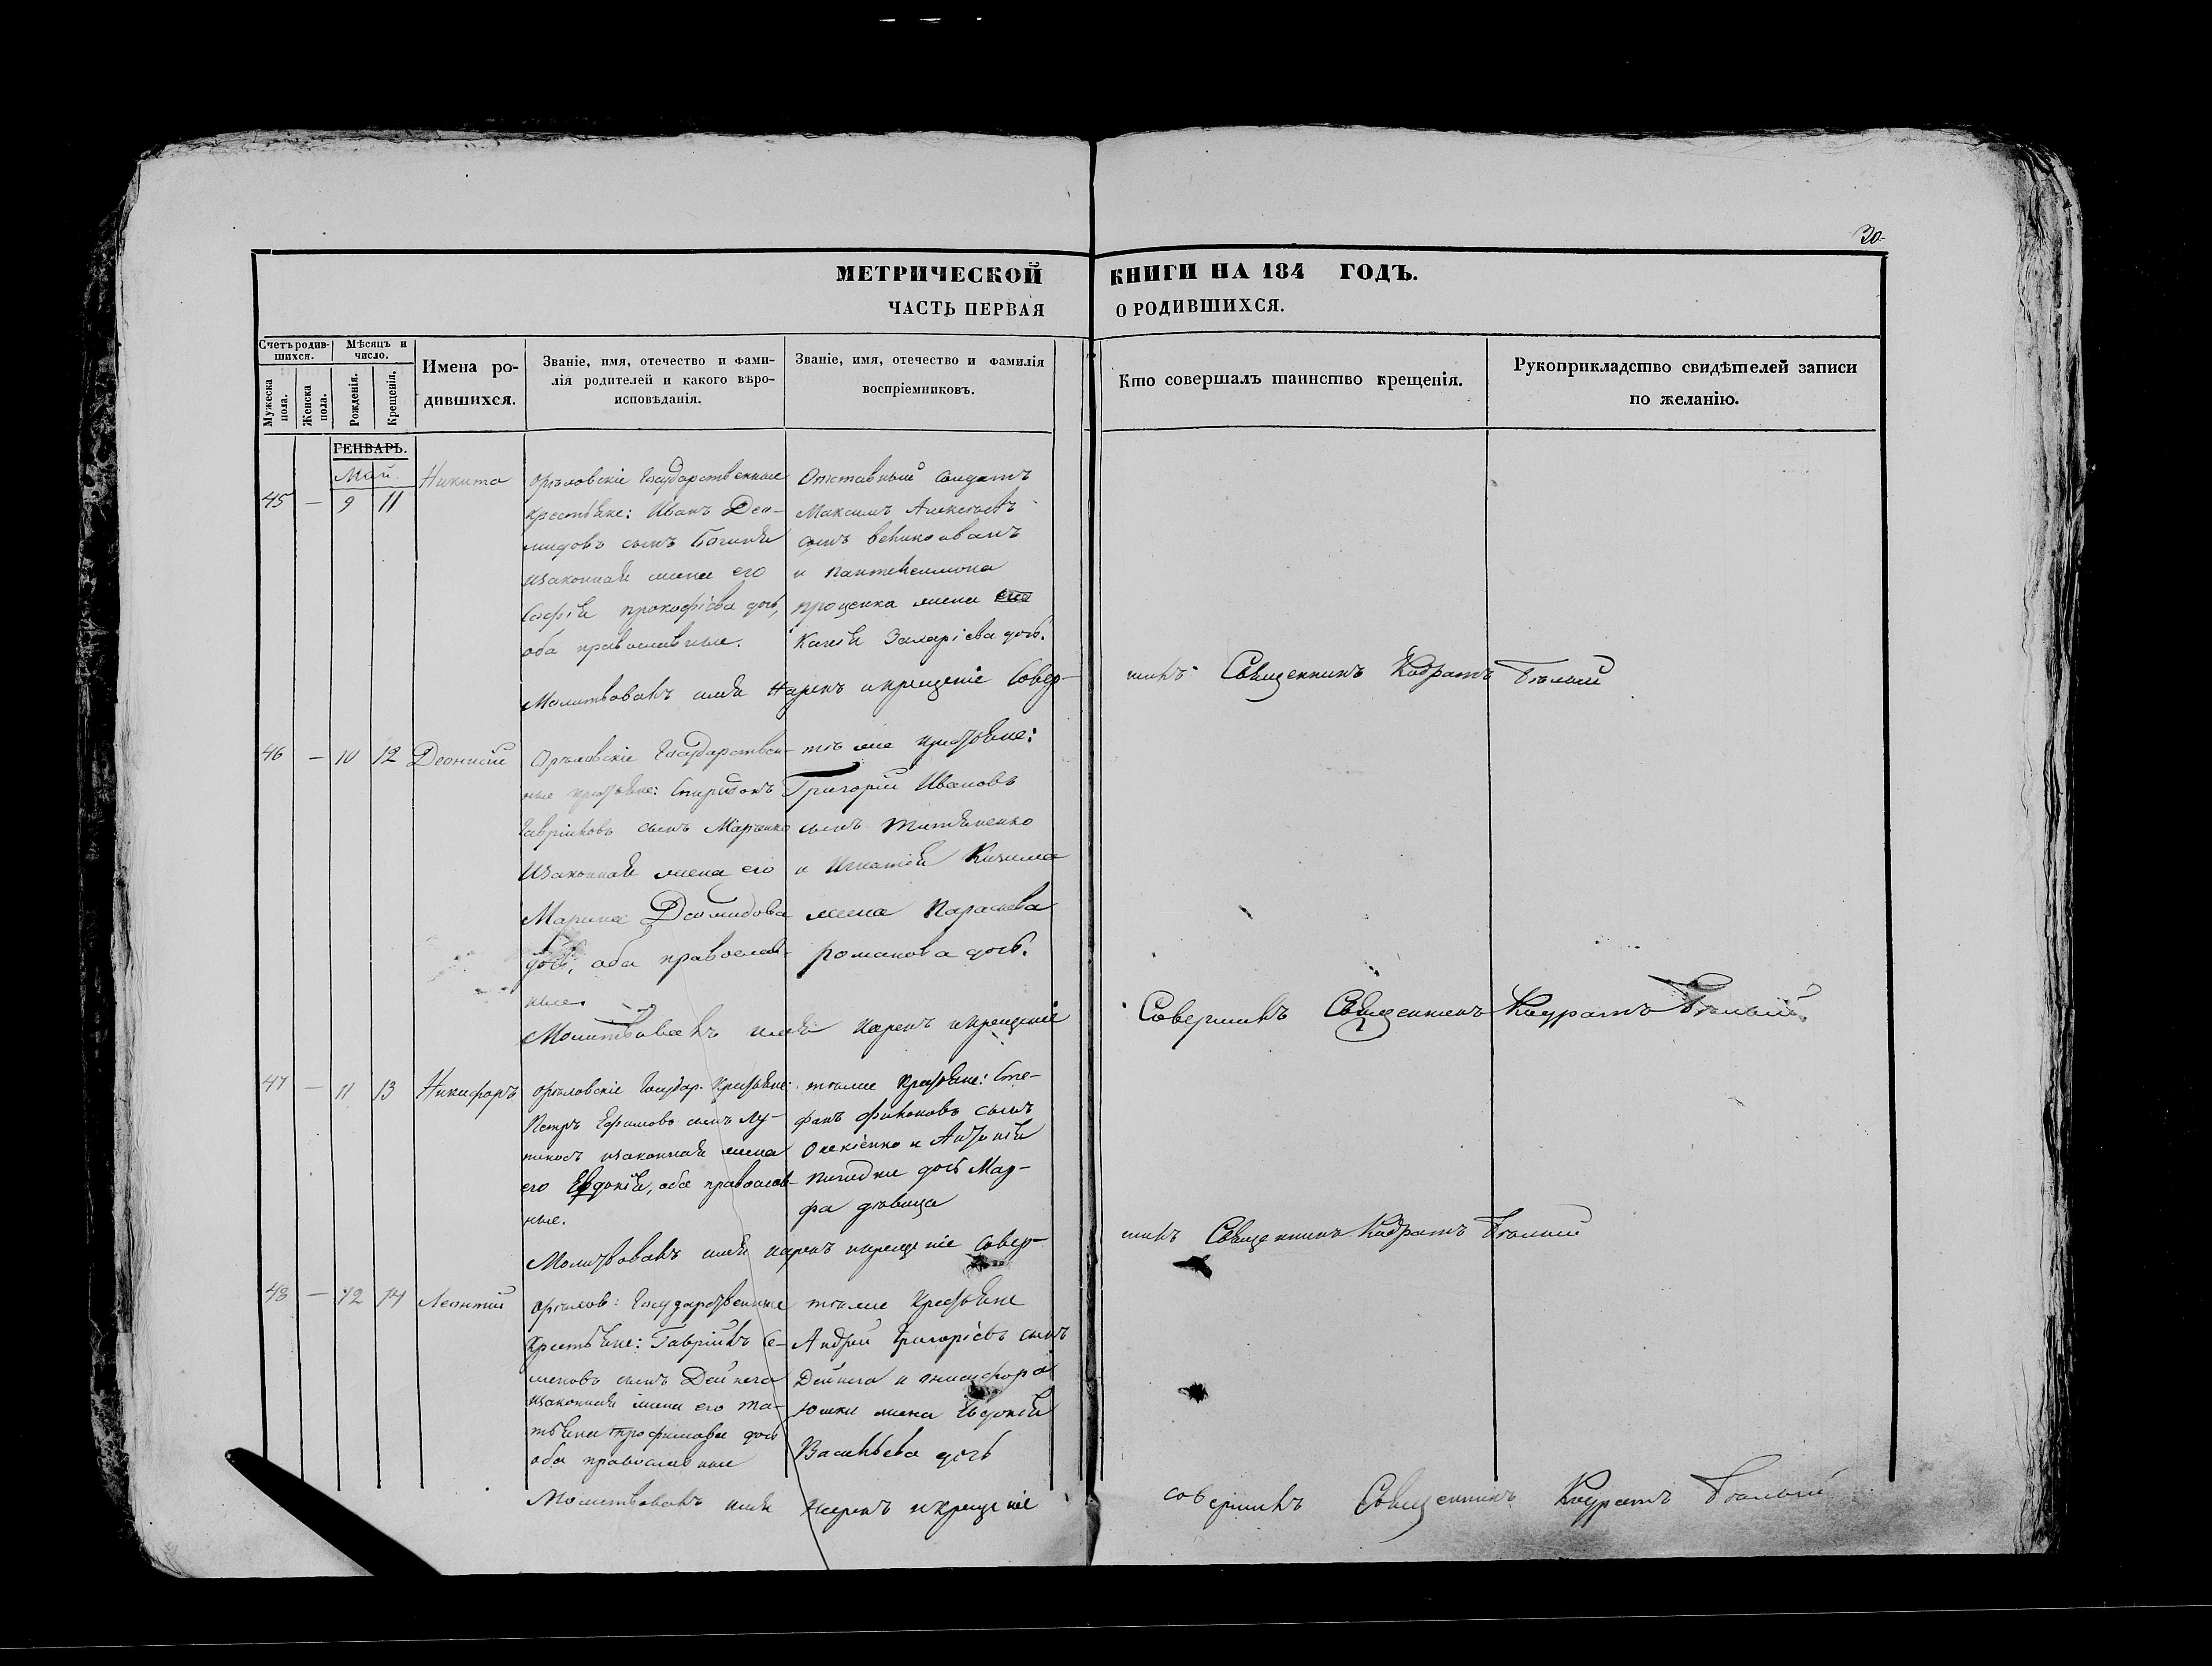 30.
МЕТРИЧЕСКОЙ КНИГИ НА 184 ГОДЪ.
ЧАСТЬ ПЕРВАЯ О РОДИВШИХСЯ.
Счетъ родив-
шихся.
Мѣсяцъ и
число.
Мужеска
пола.
Женска
пола.
Рожденія.
Крещенія.
Имена ро-
дившихся.
Званіе, имя, отечество и фами-
лія родителей и какого вѣро-
исповѣданія.
Званіе, имя, отечество и фамилія
воспріемниковъ.
Кто совершалъ таинство крещенія.
Рукоприкладство свидѣтелей записи
по желанію.
ГЕНВАРЬ.
Май.
45 — 9 11
Никита
Государственные
Иванъ Део-
мидовъ сынъ
изаконная жена его
Софія прокофіева дочь,
оба православные.
Отставный солдатъ
Максимъ Алексѣевъ
сынъ
и пантелеимона
проценка жена его
дочь.
Молитвовалъ имя нарекъ икрещеніе совер-
шилъ Священникъ Кодратъ Бѣлый
46 — 10 12
Деонисій
Государствен-
ные Спиридонъ
Гавріиловъ сынъ Марченко
изаконная жена его
Марина Деомидова
дочь, оба православ-
ные.
тѣ же
Григорій Ивановъ
сынъ
и Игнатія
жена Параскева
романова дочь.
Молитвовалъ имя нарекъ икрещеніе
Совершилъ Священникъ Кодратъ Бѣлый.
47 — 11 13
Никифоръ
Государ.
Петръ Ефимовъ сынъ
изаконная жена
его Евдокія, оба православ-
ные.
тѣже Сте-
фанъ сынъ
и Антонія
дочь Мар-
фа дѣвица
Молитвовалъ имя нарекъ икрещеніе совер-
шилъ Священникъ Кодратъ Бѣлый
48 — 12 14
Леонтій
Государственные
Гавріилъ Се-
меновъ сынъ Дейнега
изаконная жена его Та-
тіяна трофимова дочь
оба православные
тѣже
Андрей Григоріевъ сынъ
Дейнега и
Юшки жена Евдокія
Васильева дочь
Молитвовалъ имя нарекъ икрещеніе
совершилъ Священникъ Кодратъ Бѣлый